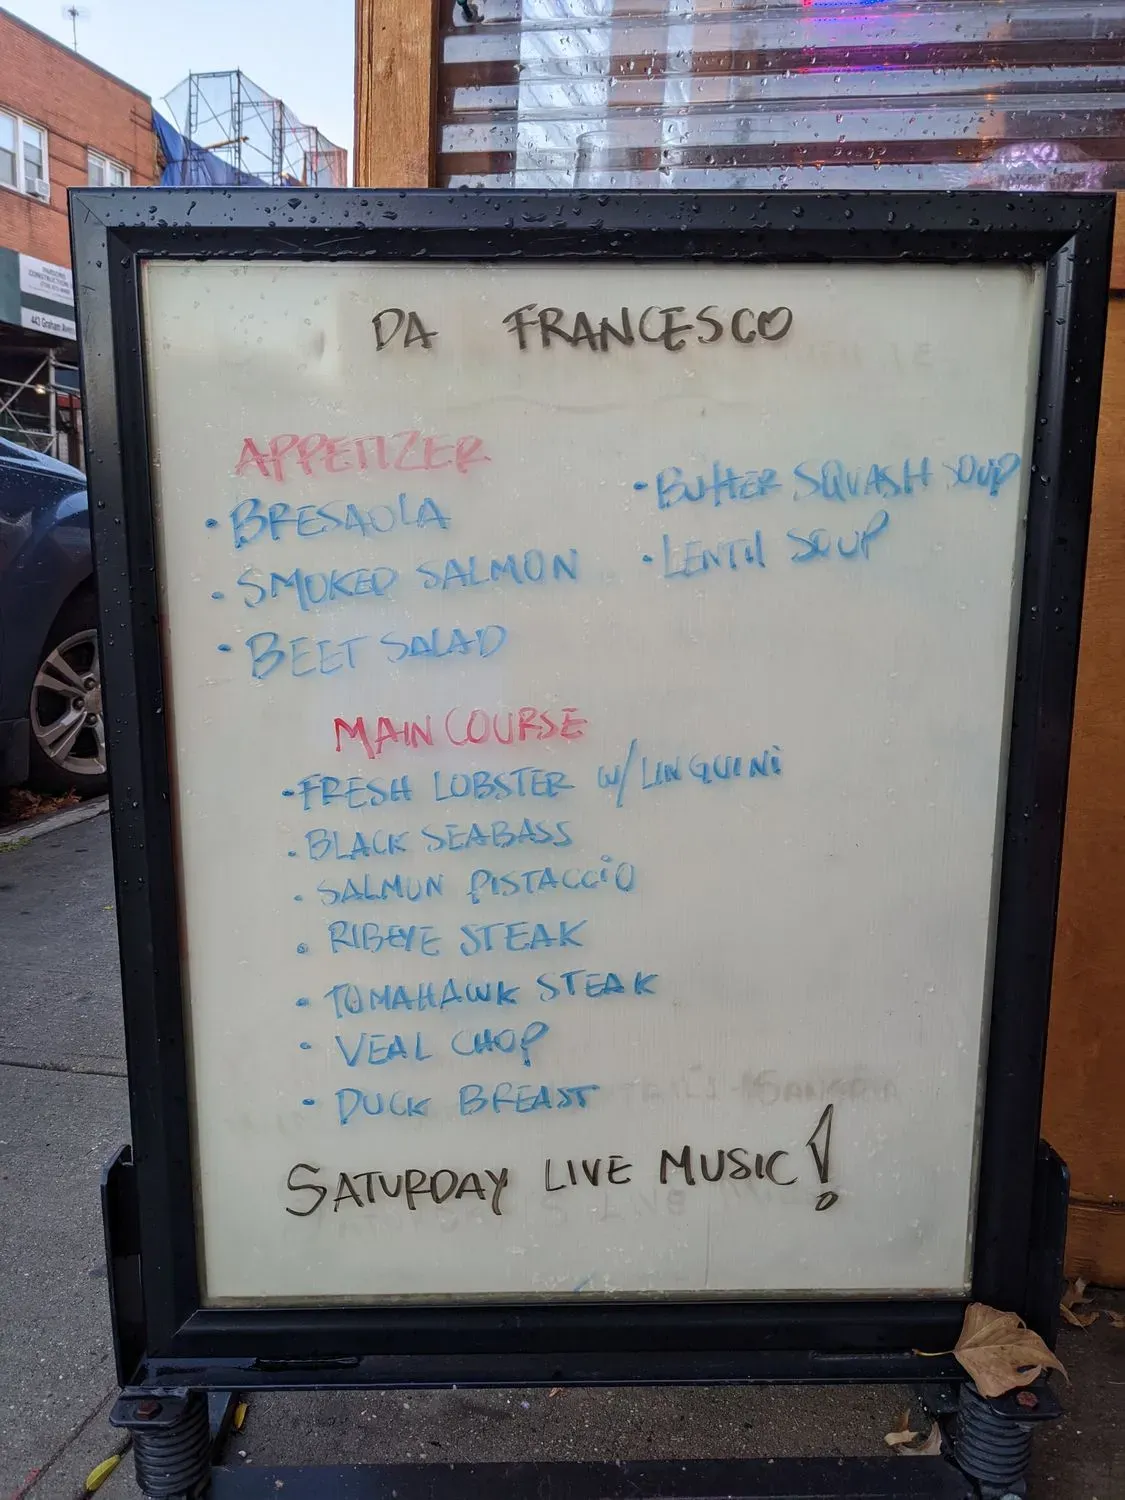 DA FRANCESCO
APPETIZER
• BRESAOLA
• SMOKED SALMON
• BEET SALAD
• BUTTER SQUASH SOUP
• LENTIL SOUP
MAIN COURSE
• FRESH LOBSTER W/ LINGUINI
• BLACK SEABASS
• SALMON PISTACCIO
• RIBEYE STEAK
• TOMAHAWK STEAK
• VEAL CHOP
• DUCK BREAST
SATURDAY LIVE MUSIC!
PARSONS
CONSTRUCTION
443 Graham Aven